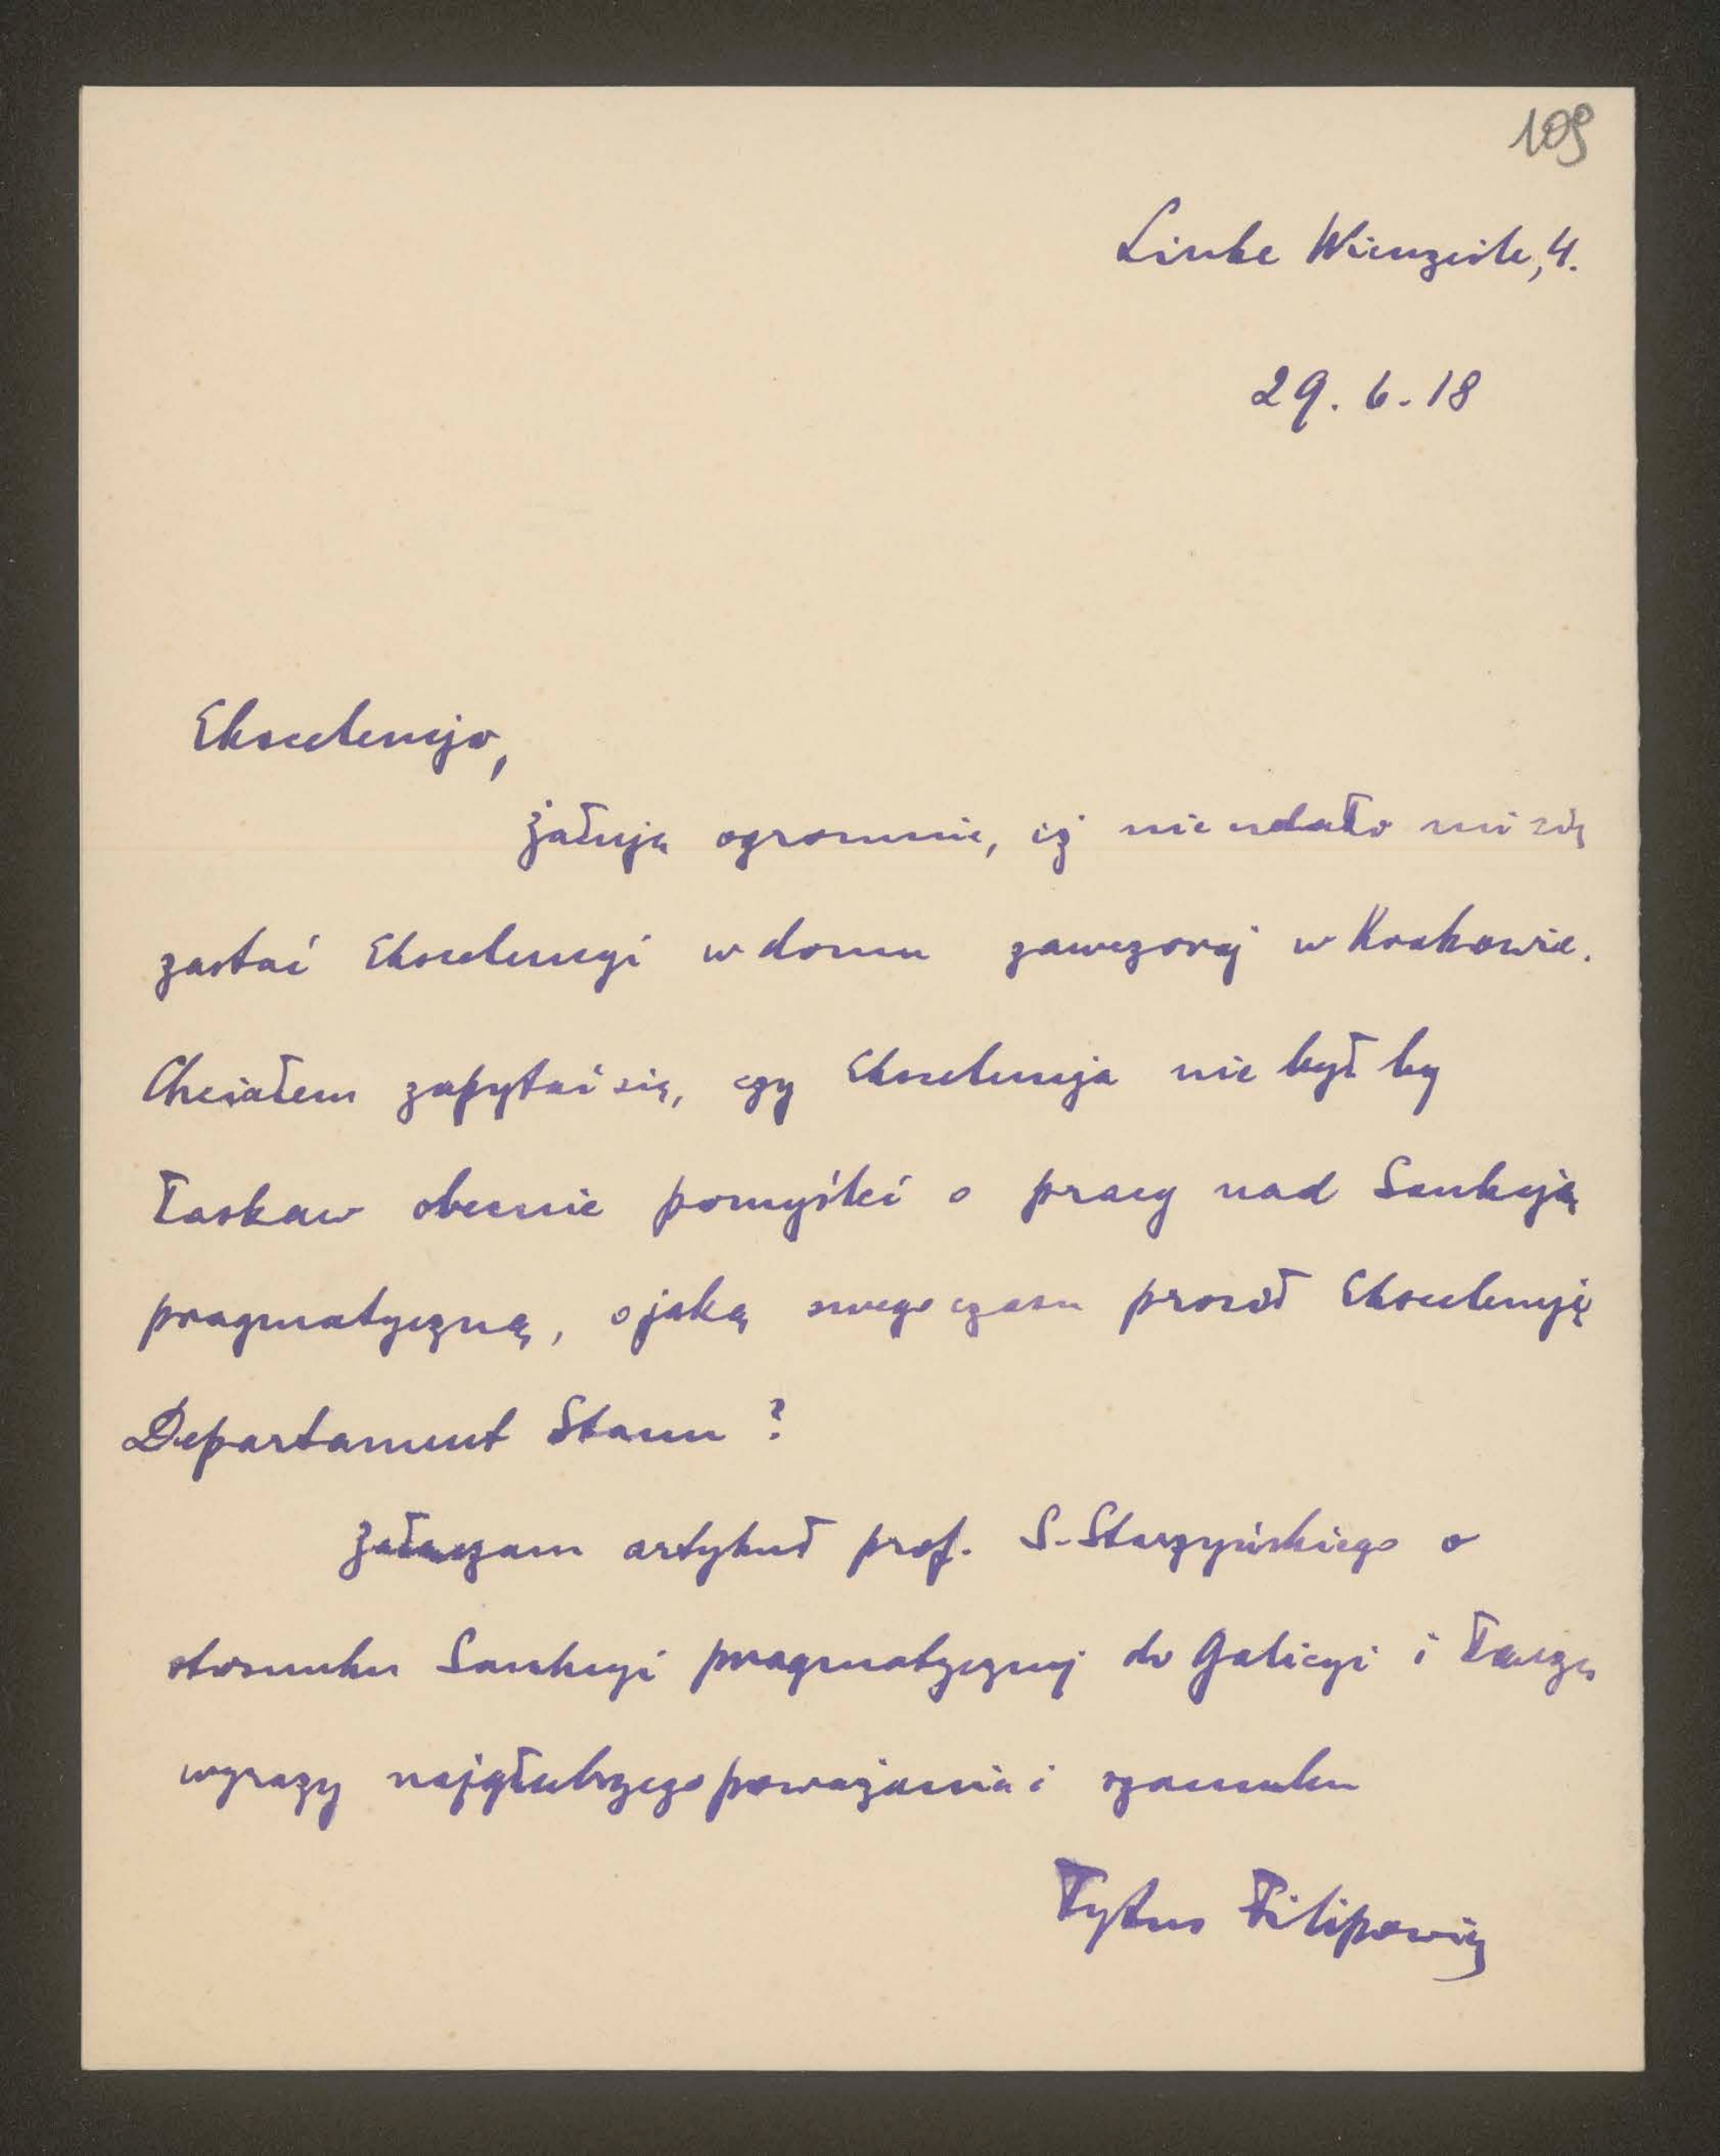 109
Linke Wienzeile, 4.
29. 6. 18
Ekscelencjo,
żałuję ogromnie, iż nie udało mi się
zastać Ekscelencyi w domu zawczoraj w Krakowie.
Chciałem zapytać się, czy Ekscelencja nie był by
łaskaw obecnie pomyśleć o pracy nad Sankcją
pragmatyczną, o jaką swego czasu prosił Ekscelencję
Departament Stanu?
Załączam artykuł prof. S. Starzyńskiego o
stosunku Sankcyi pragmatycznej do Galicyi i łączę
wyrazy najgłubszego poważania i szacunku
Tytus Filipowicz